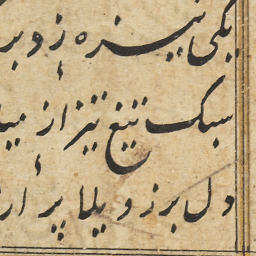 یکی نیزه زد بر
سبک تیغ تیز از میا
دل برز و یلما پر ار